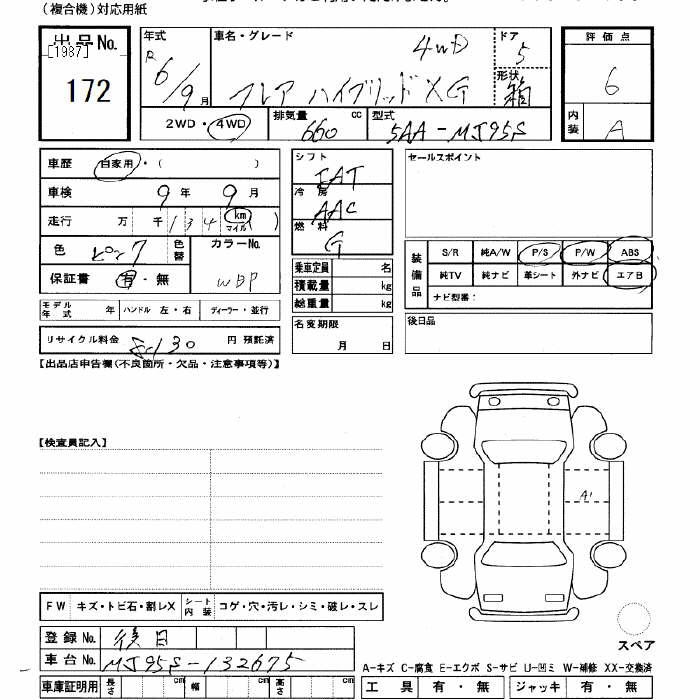 (複合機)対応用紙
出品No.
[1987]
172
年式
R 6/9月
車名・グレード
4WD
フレア ハイブリッドXG
ドア
5
形状
箱
評価点
6
内装
A
2WD・4WD
排気量
660 cc
型式
5AA-MJ95S
車歴
自家用・( )
車検
9年 9月
走行
万 千 134 (km マイル)( )
色
ピンク
色替
カラーNo.
WBP
保証書
有・無
モデル年式 年
ハンドル 左・右
ディーラー・並行
リサイクル料金 8130 円 預託済
シフト
FAT
冷房
AAC
燃料
G
乗車定員 名
積載量 kg
総重量 kg
名変期限
月 日
セールスポイント
装備品
S/R 純A/W P/S P/W ABS
純TV 純ナビ 革シート 外ナビ エアB
ナビ型番:
後日品
【出品店申告欄(不良箇所・欠品・注意事項等)】
【検査員記入】
A1
FW キズ・トビ石・割レX
シート内装 コゲ・穴・汚レ・シミ・破レ・スレ
登録No. 後日
車台No. MJ95S-132675
車庫証明用 長さ cm 幅 cm 高さ cm
スペア
A-キズ C-腐食 E-エクボ S-サビ U-凹ミ W-補修 XX-交換済
工具 有・無 ジャッキ 有・無